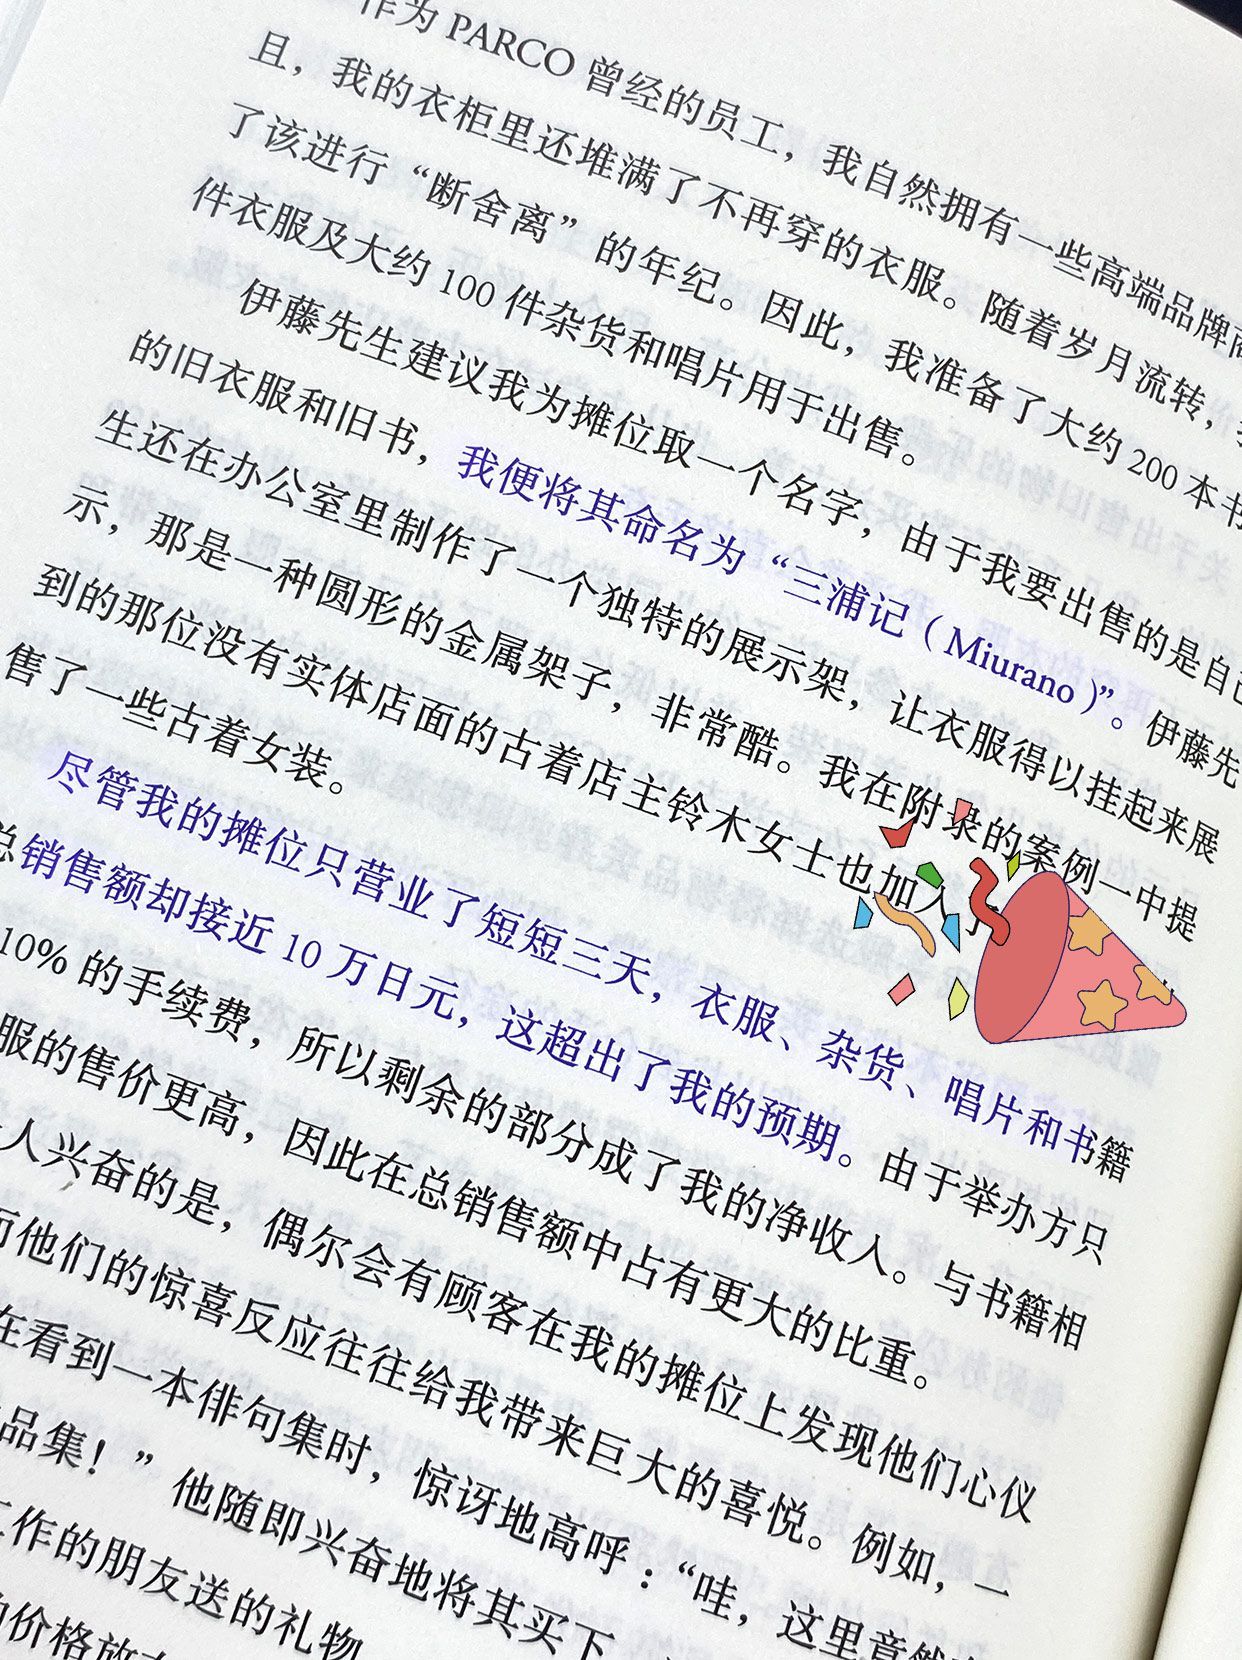 作为 PARCO 曾经的员工，我自然拥有一些高端品牌商
且，我的衣柜里还堆满了不再穿的衣服。随着岁月流转，
了该进行“断舍离”的年纪。因此，我准备了大约 200 本书
件衣服及大约 100 件杂货和唱片用于出售。
伊藤先生建议我为摊位取一个名字，由于我要出售的是自己
的旧衣服和旧书，我便将其命名为“三浦记（Miurano）”。伊藤先
生还在办公室里制作了一个独特的展示架，让衣服得以挂起来展
示，那是一种圆形的金属架子，非常酷。我在附录的案例一中提
到的那位没有实体店面的古着店主铃木女士也加入了
售了一些古着女装。
尽管我的摊位只营业了短短三天，衣服、杂货、唱片和书籍
总销售额却接近 10 万日元，这超出了我的预期。由于举办方只
10% 的手续费，所以剩余的部分成了我的净收入。与书籍相
服的售价更高，因此在总销售额中占有更大的比重。
人兴奋的是，偶尔会有顾客在我的摊位上发现他们心仪
而他们的惊喜反应往往给我带来巨大的喜悦。例如，一
在看到一本俳句集时，惊讶地高呼：“哇，这里竟然
品集！”他随即兴奋地将其买下
工作的朋友送的礼物
价格放在